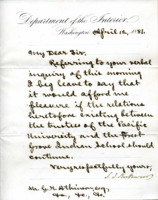 Department of the Interior,
Washington April 12, 1883.
My Dear Sir.
Referring to your verbal
inquiry of this morning
I beg leave to say that
it would afford me
pleasure if the relations
heretofore existing between
the trustees of the Pacific
University and the Forest
Grove Indian School should
continue.
Very respectfully yours,
Mr. G. H. Atkinson,